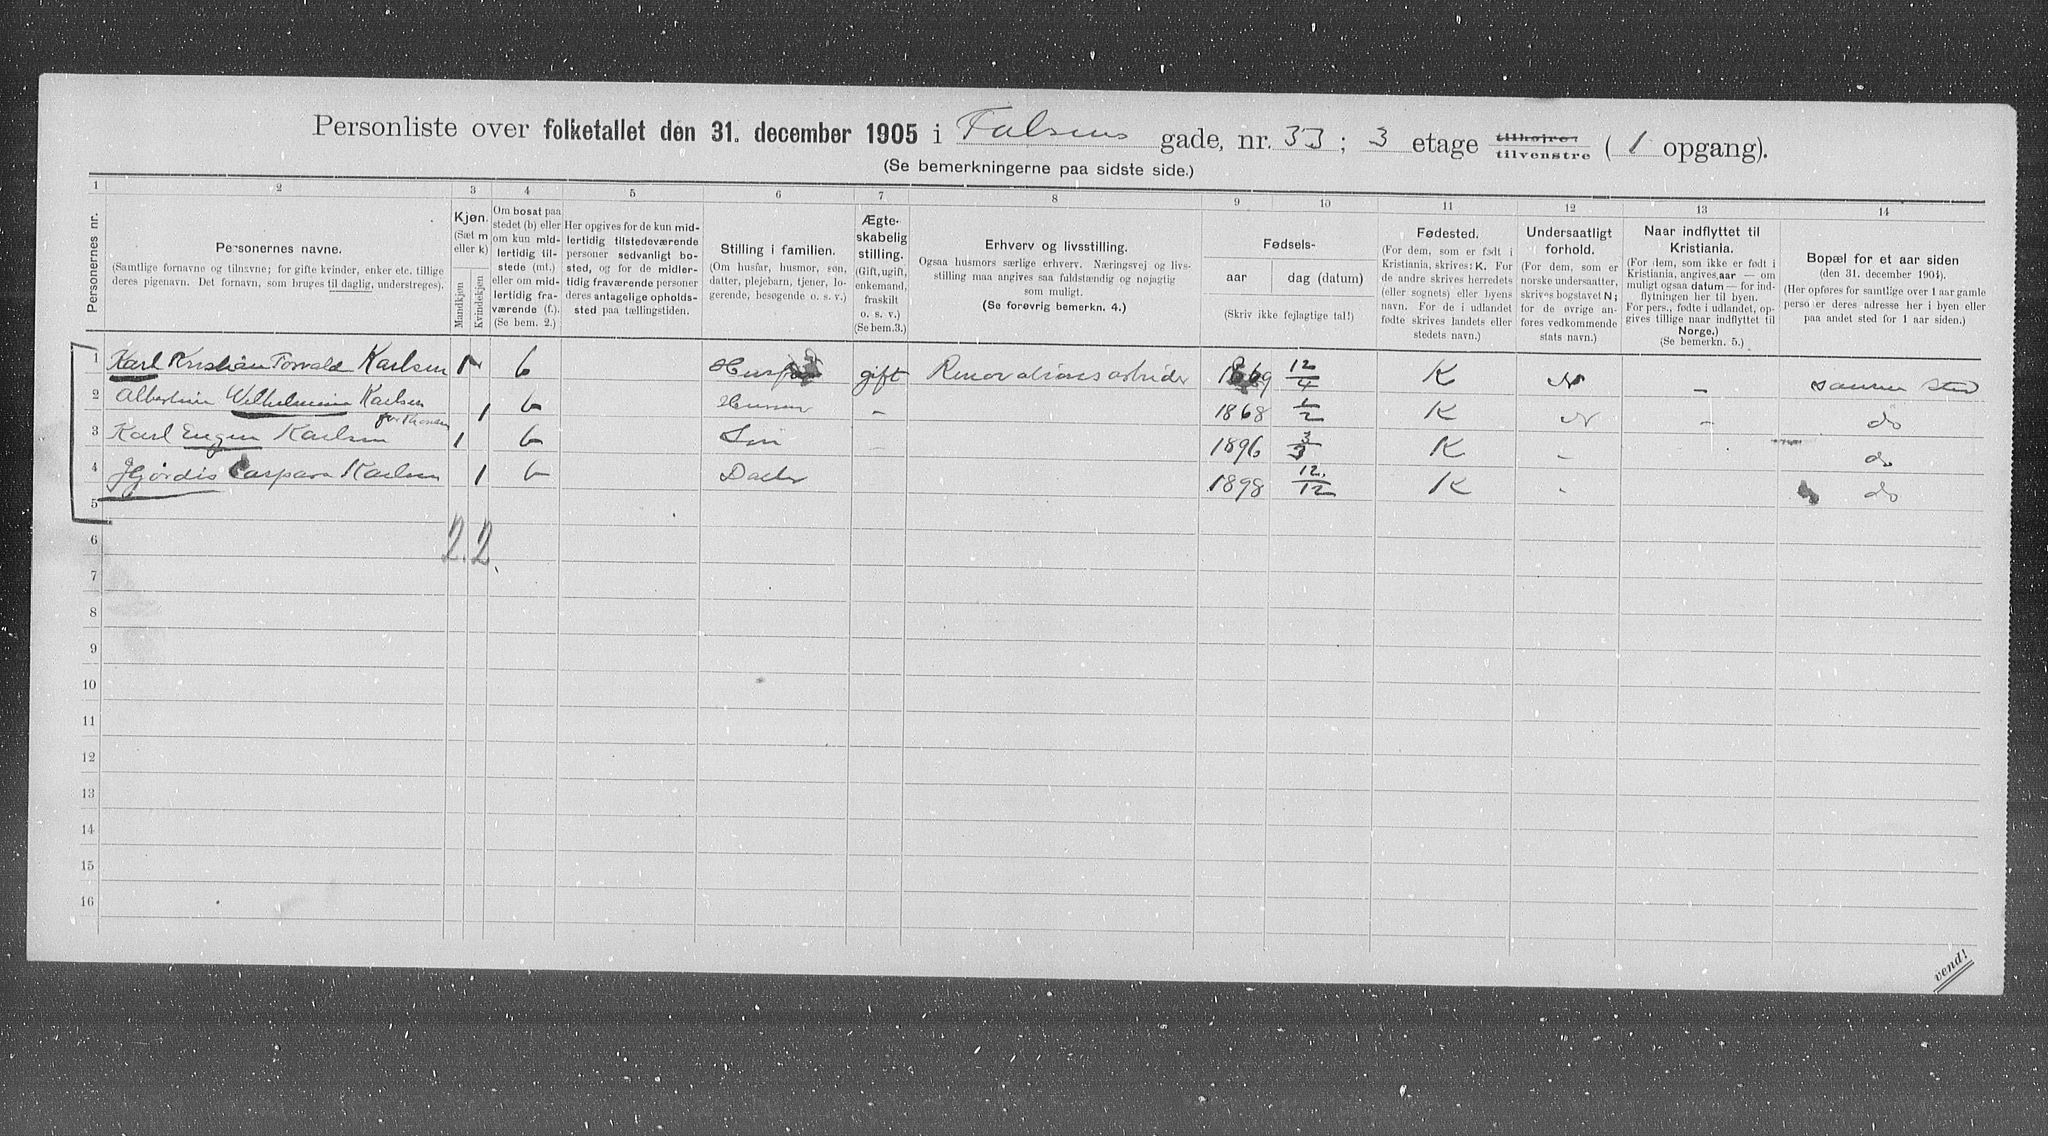 Personliste over folketallet den 31. december 1905 i Falsens gade, nr. 33; 3 etage tilhøjre/tilvenstre (1 opgang).
(Se bemerkningerne paa sidste side.)
1 2 3 4 5 6 7 8 9 10 11 12 13 14
Personernes nr.
Personernes navne.
(Samtlige fornavne og tilnavne; for gifte kvinder, enker etc. tillige
deres pigenavn. Det fornavn, som bruges til daglig, understreges).
Kjøn.
(Sæt m
eller k)
Mandkjøn
Kvindekjøn
Om bosat paa
stedet (b) eller
om kun mid-
lertidig til-
stede (mt.)
eller om mid-
lertidig fra-
værende (f.).
(Se bem. 2.)
Her opgives for de kun mid-
lertidig tilstedeværende
personer sedvanlig bo-
sted, og for de midler-
tidig fraværende personer
deres antagelige opholds-
sted paa tællingstiden.
Stilling i familien.
(Om husfar, husmor, søn,
datter, plejebarn, tjener, lo-
gerende, besøgende o. s. v.)
Ægte-
skabelig
stilling.
(Gift, ugift,
enkemand,
fraskilt
o. s. v.)
(Se bem. 3.)
Erhverv og livsstilling.
Ogsaa husmors særlige erhverv. Næringsvej og livs-
stilling maa angives saa fuldstændig og nøjagtig
som muligt.
(Se forøvrig bemerkn. 4.)
Fødsels-
aar
dag (datum)
(Skriv ikke fejlagtige tal!)
Fødested.
(For dem, som er født i
Kristiania, skrives: K. For
de andre skrives herredets
(eller sognets) eller byens
navn. For de i udlandet
fødte skrives landets eller
stedets navn.)
Undersaatligt
forhold.
(For dem, som er
norske undersaatter,
skrives bogstavet N;
for de øvrige an-
føres vedkommende
stats navn.)
Naar indflyttet til
Kristiania.
(For dem, som ikke er født i
Kristiania, angives aar — om
muligt ogsaa datum — for ind-
flytningen her til byen.
For pers., fødte i udlandet, op-
gives tillige naar indflyttet til
Norge.)
(Se bemerkn. 5.)
Bopæl for et aar siden
(den 31. december 1904).
(Her opføres for samtlige over 1 aar gamle
personer deres adresse her i byen eller
paa andet sted for 1 aar siden.)
1 Karl Kristian Torvald Karlsen 1 b Husfar gift Renovationsarbeider 1869 12/4 K N - samme sted
2 Albertine Wilhelmine Karlsen 1 b Husmor - 1868 1/2 K N - do
3 Karl Eugen Karlsen 1 b Søn - 1896 3/3 K - do
4 Hjørdis Caspara Karlsen 1 b Datter 1898 12/12 K - do
5
6 2. 2
7
8
9
10
11
12
13
14
15
16
vend!